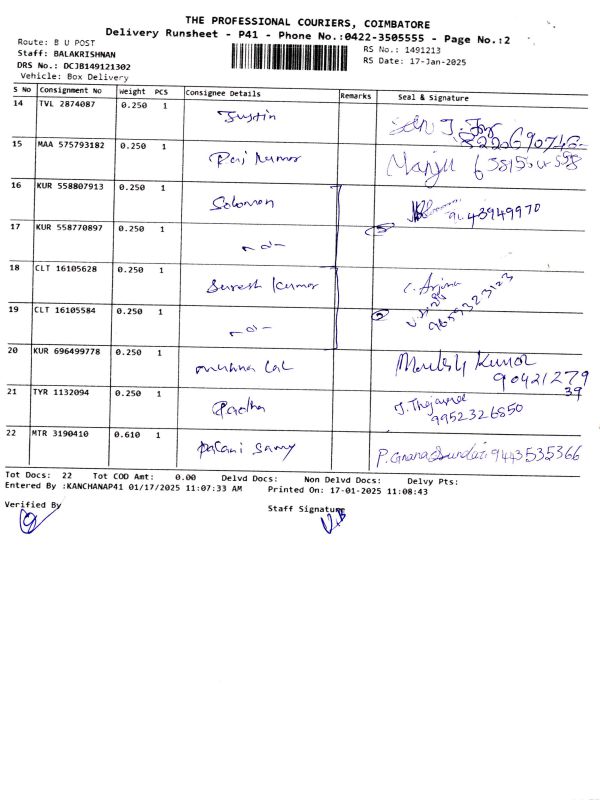 THE PROFESSIONAL COURIERS, COIMBATORE
Delivery Runsheet - P41 - Phone No.:0422-3505555 - Page No.:2
Route: B U POST
Staff: BALAKRISHNAN
DRS No.: DCJB149121302
Vehicle: Box Delivery
RS No.: 1491213
RS Date: 17-Jan-2025
S No Consignment No Weight PCS Consignee Details Remarks Seal & Signature
14 TVL 2874087 0.250 1 Justin
15 MAA 575793182 0.250 1 Raj Kumar Manju
16 KUR 558807913 0.250 1 Solomon 9043949970
17 KUR 558770897 0.250 1 -do-
18 CLT 16105628 0.250 1 Suresh Kumar C. Arjuna
19 CLT 16105584 0.250 1 -do- 9659323123
20 KUR 696499778 0.250 1 Lal Kumar
9042127939
21 TYR 1132094 0.250 1 Radha J.
9952326850
22 MTR 3190410 0.610 1 Palani Samy P. Gnana Sundari 9443535366
Tot Docs: 22 Tot COD Amt: 0.00 Delvd Docs: Non Delvd Docs: Delvy Pts:
Entered By :KANCHANAP41 01/17/2025 11:07:33 AM Printed On: 17-01-2025 11:08:43
Verified By Staff Signature